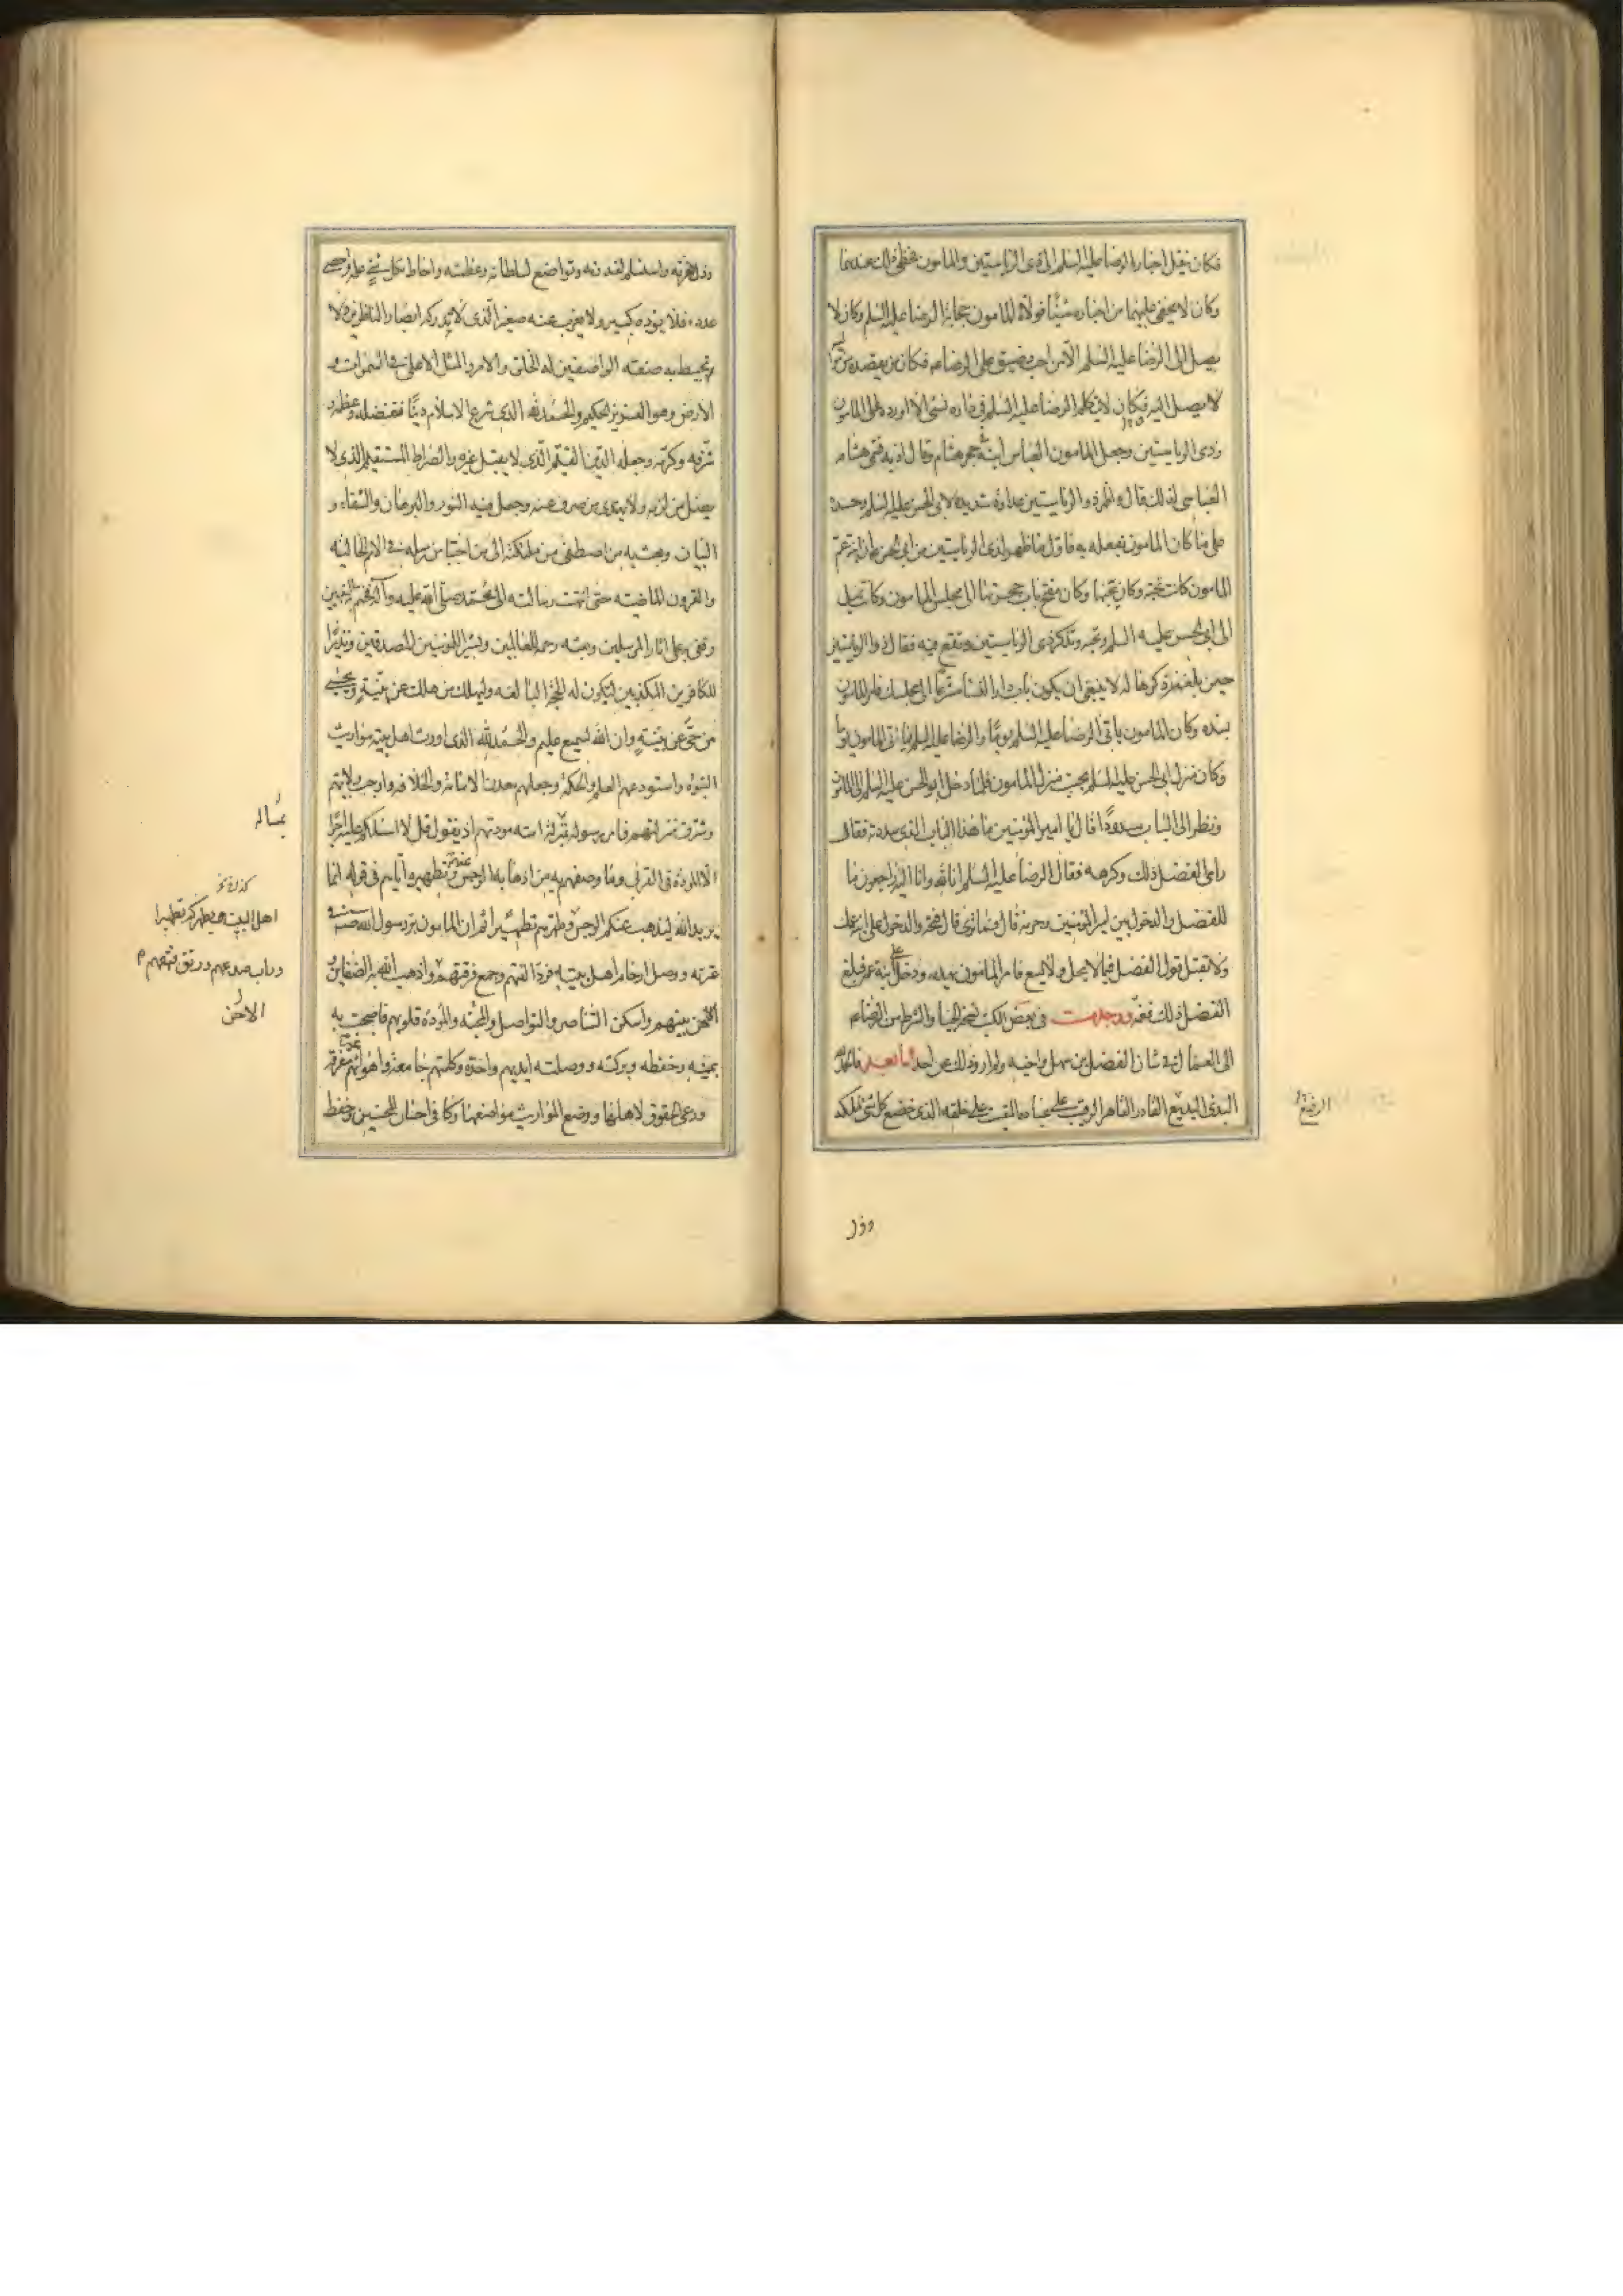 فكان ينقل اخبار الرضا عليه السلم الى ذي الرياستين والمامون فحظي بذلك عندهما
وكان لا يخفى عليهما من اخباره شيئا فولاه المامون حجابة الرضا عليه السلم وكان لا
يصل الى الرضا عليه السلم الا من احب وضيق على الرضا ع فكان من يقصده من مواليه
لا يصل اليه وكان لا يتكلم الرضا عليه السلم في داره بشئ الا اورده على المامون
وذي الرياستين وجعل المامون العباس ابنه في حجر هشام وقال ادبه فسمى هشام
العباسي لذلك قال واظهر ذو الرياستين عداوة شديدة لابي الحسن عليه السلم وحسده
على ما كان المامون يفعله به فاول ما ظهر لذي الرياستين من ابي الحسن ان ابنة عم
المامون كانت تحبه وكان يحبها وكان يفتح باب حجرتها الى مجلس المامون وكانت تميل
الى ابي الحسن عليه السلم وتحبه وتذكر ذي الرياستين وتقع فيه فقال ذو الرياستين
حين بلغه ذكرها له لا ينبغي ان يكون باب دار النساء مشرعا الى مجلسك فامر المامون
بسده وكان المامون ياتي الرضا عليه السلم يوما والرضا عليه السلم ياتي المامون يوما
وكان منزل ابي الحسن عليه السلم بجنب منزل المامون فلما دخل ابو الحسن عليه السلم الى المامون
ونظر الى الباب مسدودا قال يا امير المؤمنين ما هذا الباب الذي سددته فقال
راى الفضل ذلك وكرهه فقال الرضا عليه السلم انا لله وانا اليه راجعون ما
للفضل والدخول بين امير المؤمنين وحرمه قال فما ترى قال فتحه والدخول على ابنة عمك
ولا تقبل قول الفضل فيما لا يحل ولا يسع فامر المامون بهدمه ودخل على ابنة عمه فبلغ
الفضل ذلك فغمه ووجدت في بعض الكتب نسخة الحباء والشرط من الرضا ع
الى العمال في شان الفضل بن سهل واخيه ولم ارو ذلك عن احد اما بعد فالحمد لله
البدئ البديع القادر القاهر الرقيب على عباده المقيت على خلقه الذي خضع كل شئ لملكه
الرفيع
وذل
وذل لعزته واستسلم لقدرته وتواضع لسلطانه وعظمته واحاط بكل شئ علمه واحصى
عدده فلا يؤده كبير ولا يعزب عنه صغير الذي لا تدركه ابصار الناظرين ولا
تحيط به صفة الواصفين له الخلق والامر والمثل الاعلى في السموات و
الارض وهو العزيز الحكيم والحمد لله الذي شرع الاسلام دينا ففضله وعظمه و
شرفه وكرمه وجعله الدين القيم الذي لا يقبل غيره والصراط المستقيم الذي لا
يضل من لزمه ولا يهتدي من صرف عنه وجعل فيه النور والبرهان والشفاء و
البيان وبعث به من اصطفى من ملئكته الى من اجتبا من رسله في الامم الخالية
والقرون الماضية حتى انتهت رسالته الى محمد صلى الله عليه وآله فختم به النبيين
وقفى به على اثار المرسلين وبعثه رحمة للعالمين وبشيرا للمؤمنين المصدقين ونذيرا
للكافرين المكذبين لتكون له الحجة البالغة وليهلك من هلك عن بينة ويحيى
من حي عن بينة وان الله لسميع عليم والحمد لله الذي اورث اهل بيته مواريث
النبوة واستودعهم العلم والحكمة وجعلهم معدن الامامة والخلافة واوجب ولايتهم
وشرف منزلتهم فامر رسوله بمسئلة امته مودتهم اذ يقول قل لا اسئلكم عليه اجرا
الا المودة في القربى وما وصفهم به من اذهابه الرجس عنهم وتطهيره اياهم في قوله انما
يريد الله ليذهب عنكم الرجس
ثم ان المامون بر رسول الله ص في
عترته ووصل ارحام اهل بيته فرد الفتهم وجمع فرقتهم واذهب الله به الضغاين و
الاحن بينهم واسكن التناصر والتواصل والمحبة والمودة قلوبهم فاصبحت
بيمنه وحفظه وبركته وصلته ايديهم واحدة وكلمتهم جامعة واهوائهم متفقة
ورعى الحقوق لاهلها ووضع المواريث مواضعها وكافى احسان المحسنين وحفظ
اهل البيت ويطهركم تطهيرا
وراب صدعهم ورتق فتقهم
الاحن